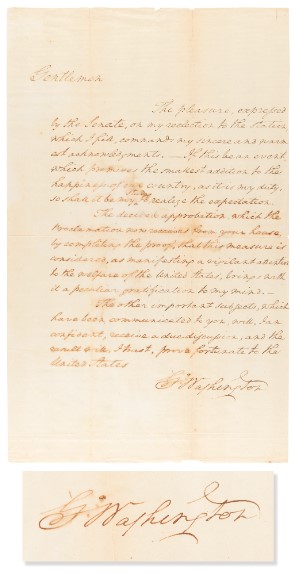 Gentlemen
The pleasure, expressed
by the Senate, on my reelection to the station
which I fill, commands my sincere and warm-
est acknowledgments. — If this be an event
which promises the smallest addition to the
happiness of our country, as it is my duty,
so shall it be my study to realize the expectation.
The decided approbation, which the
Proclamation now receives from your house,
by completing the proof, that this measure is
considered, as manifesting a vigilant attention
to the welfare of the United States, brings with
it a peculiar gratification to my mind. —
The other important subjects, which
have been communicated to you, will, I am
confident, receive a due discussion, and the
result will, I trust, prove fortunate to the
United States
Go Washington
Go Washington